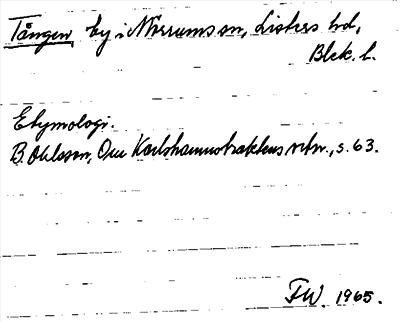 Tången, by i Mörrums sn, Listers hd,
Blek. l.
Etymologi.
B. Ohlsson, Om Karlshamnstraktens ortn., s. 63.
FW. 1965.